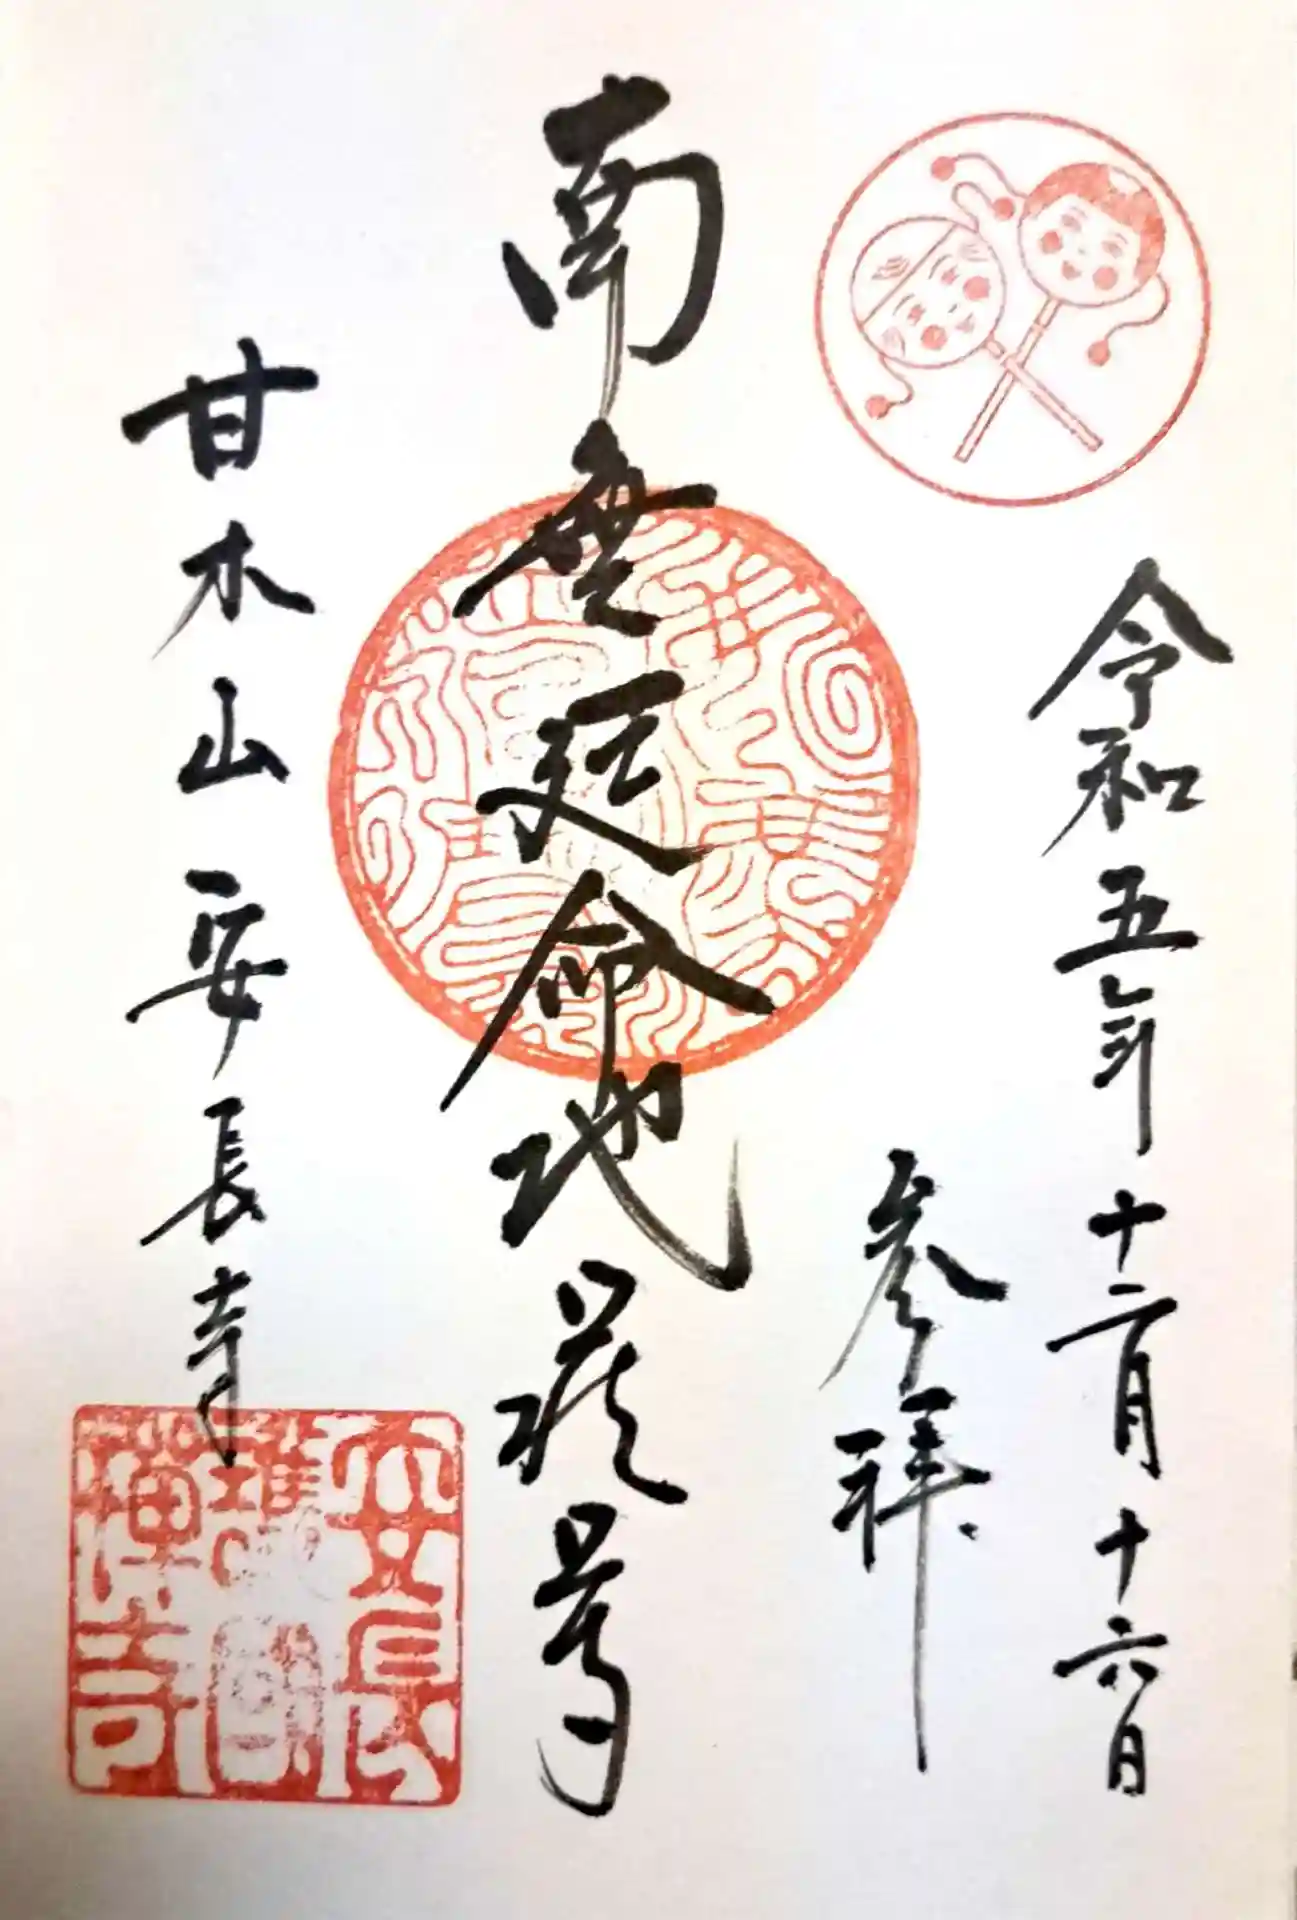 令和五年十二月十六日
参拝
南無延命地蔵尊
甘木山安長寺
安長
禪寺